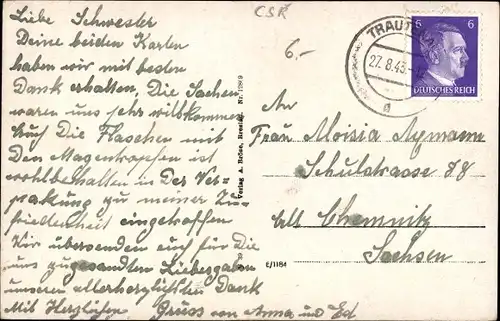 Liebe Schwester
Deine beiden Karten
haben wir mit besten
Dank erhalten, Die Sachen
waren uns sehr willkommen
Auch Die Flaschen mit
Den Magentropfen ist
wohlbehalten in Der Ver-
pakung zu meiner Zu-
friedenheit eingetroffen
Wir übersenden euch für Die
uns zugesandten Liebesgaben
unseren allerherzlichsten Dank
Mit Herzlichen Gruss von Anna und Ed
ČSR
6,-
TRAUT
27.8.43.
a
6 6
DEUTSCHES REICH
An
Frau Aloisia Aymann
Schulstrasse 78
Chemnitz
Sachsen
Verlag A. Bröse, Breslau. Nr. 17869
E/1184